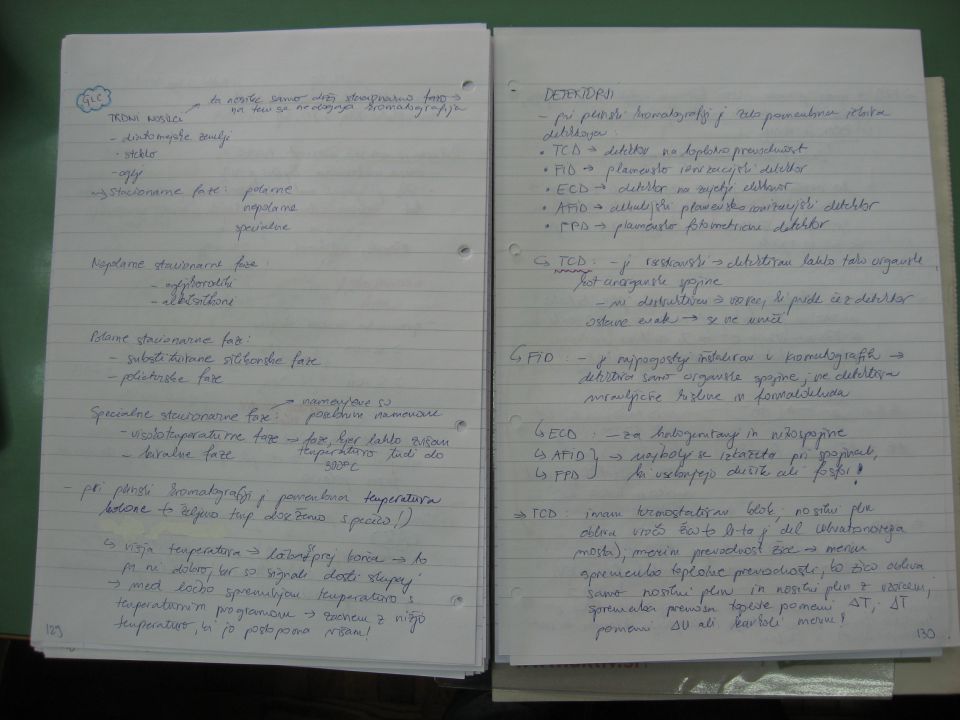 GLC
ta nosilec samo drži stacionarno fazo →
na tem se ne dogaja kromatografija
TRDNI NOSILCI
- diatomejske zemlje
- steklo
- oglje
→ Stacionarne faze: polarne
nepolarne
specialne
Nepolarne stacionarne faze:
- ogljikovodiki
- alkilsilikone
Polarne stacionarne faze:
- substituirane silikonske faze
- poliestrske faze
Specialne stacionarne faze:
namenjene so
posebnim namenom
- visokotemperaturne faze → faze, kjer lahko zvišam
temperaturo tudi do
300°C
- kiralne faze
pri plinski kromatografiji je pomembna temperatura
kolone → željeno temp dosežemo s pečico!)
↳ višja temperatura → ločba prej konča → to
pa ni dobro, ker so signali dosti skupaj
→ med ločbo spreminjam temperaturo s
temperaturnim programom → začnem z nižjo
temperaturo, ki jo postopoma višam!
129
DETEKTORJI
- pri plinski kromatografiji je zelo pomembna izbira
detektorja:
• TCD → detektor na toplotno prevodnost
• FID → plamensko ionizacijski detektor
• ECD → detektor na zajetje elektronov
• AFID → alkalijski plamensko ionizacijski detektor
• FPD → plamensko fotometrični detektor
↳ TCD: - je vsestranski → detektiram lahko tako organske
kot anorganske spojine
- ni destruktiven → vzorec, ki pride čez detektor
ostane enak → se ne uniči
↳ FID: - je najpogosteje inštaliran v kromatografih →
detektira samo organske spojine; ne detektira
mravljične kisline in formaldehida
↳ ECD: - za halogenirane spojine
↳ AFID
↳ FPD
} → najbolj se izkažeta pri spojinah,
ki vsebujejo dušik ali fosfor!
→ TCD: imam termostatiran blok; nosilni plin
obliva vročo žico → (ki je del Wheatstonovega
mosta); merim prevodnost žice → merim
spremembo toplotne prevodnosti, ko žico obliva
samo nosilni plin in nosilni plin z vzorcem;
sprememba prenosa toplote pomeni ΔT, ΔT
pomeni ΔU ali karkoli merim!
130